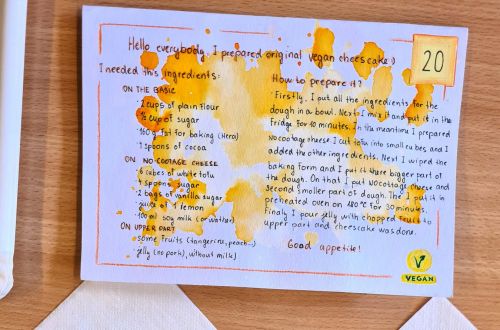 Hello everybody, I prepared original vegan cheesecake :)
20
I needed this ingredients:
ON THE BASIC
2 cups of plain flour
½ cup of sugar
160 g fat for baking (Hera)
spoons of cocoa
ON NO-COTTAGE CHEESE
6 cubes of white tofu
spoons sugar
2 bags of vanilla sugar
juice of 1 lemon
100 ml soy milk (or water)
ON UPPER PART
some fruits (tangerine, peach...)
jelly (no pork), without milk)
How to prepare it?
Firstly, I put all the ingredients for the
dough in a bowl. Next I mix it and put it in the
fridge for 10 minutes. In the meantime I prepared
nocottage cheese. I cut tofu into small cubes, and I
added the other ingredients. Next I wiped the
baking form and I put it there bigger part of
the dough. On that I put nocottage cheese and
second smaller part of dough. The I put it in
preheated oven on 180°C for 30 minutes.
Finaly I pour jelly with chopped fruit to
upper part and cheesecake was done.
Good appetite!
V
VEGAN